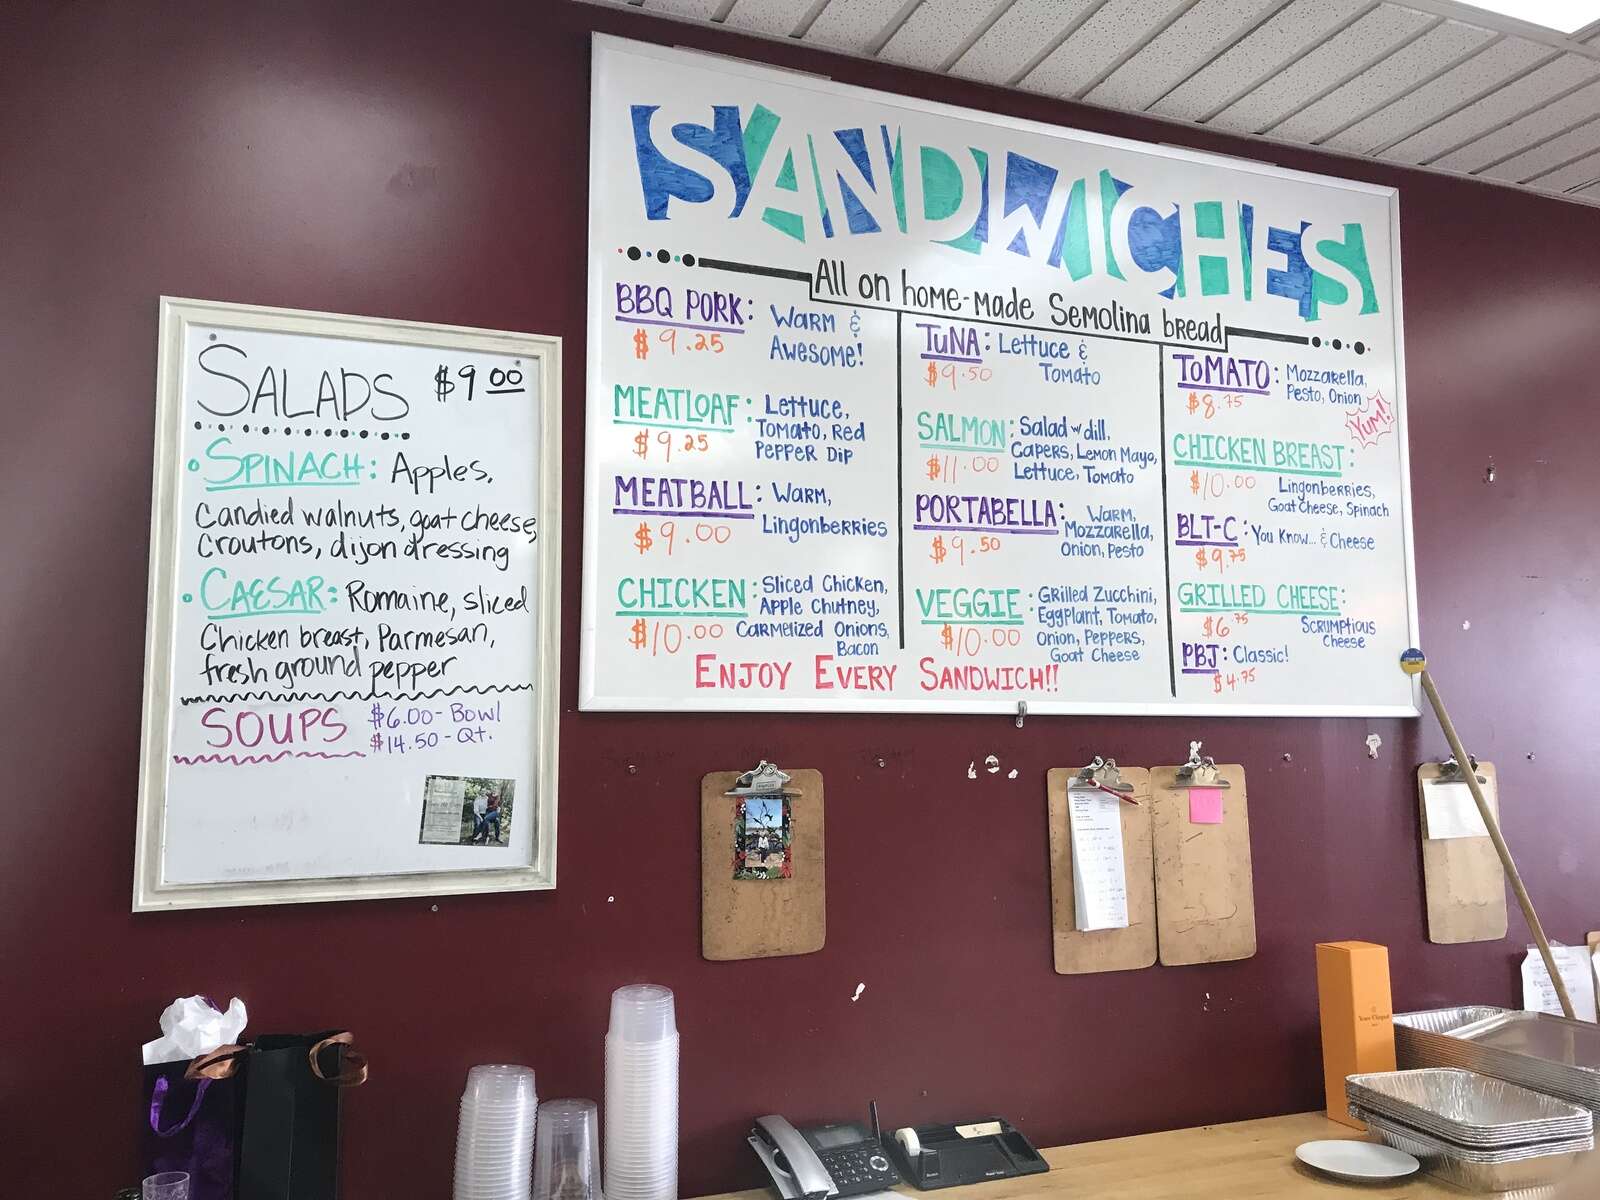 SALADS $9.00
• SPINACH: Apples,
Candied walnuts, goat cheese,
croutons, dijon dressing
• CAESAR: Romaine, sliced
Chicken breast, Parmesan,
fresh ground pepper
SOUPS $6.00 - Bowl
$14.50 - Qt.
SANDWICHES
All on home-made Semolina bread
BBQ PORK: Warm &
$9.25 Awesome!
MEATLOAF: Lettuce,
$9.25 Tomato, Red
Pepper Dip
MEATBALL: Warm,
$9.00 Lingonberries
CHICKEN: Sliced Chicken,
Apple Chutney,
$10.00 Carmelized Onions,
Bacon
TUNA: Lettuce &
$9.50 Tomato
SALMON: Salad w dill,
Capers, Lemon Mayo,
$11.00 Lettuce, Tomato
PORTABELLA: Warm,
Mozzarella,
$9.50 Onion, Pesto
VEGGIE: Grilled Zucchini,
Eggplant, Tomato,
$10.00 Onion, Peppers,
Goat Cheese
TOMATO: Mozzarella,
$8.75 Pesto, Onion
YUM!
CHICKEN BREAST:
$10.00 Lingonberries,
Goat Cheese, Spinach
BLT-C: You Know... & Cheese
$9.75
GRILLED CHEESE:
$6.75 Scrumptious
Cheese
PBJ: Classic!
$4.75
ENJOY EVERY SANDWICH!!
Veuve Clicquot